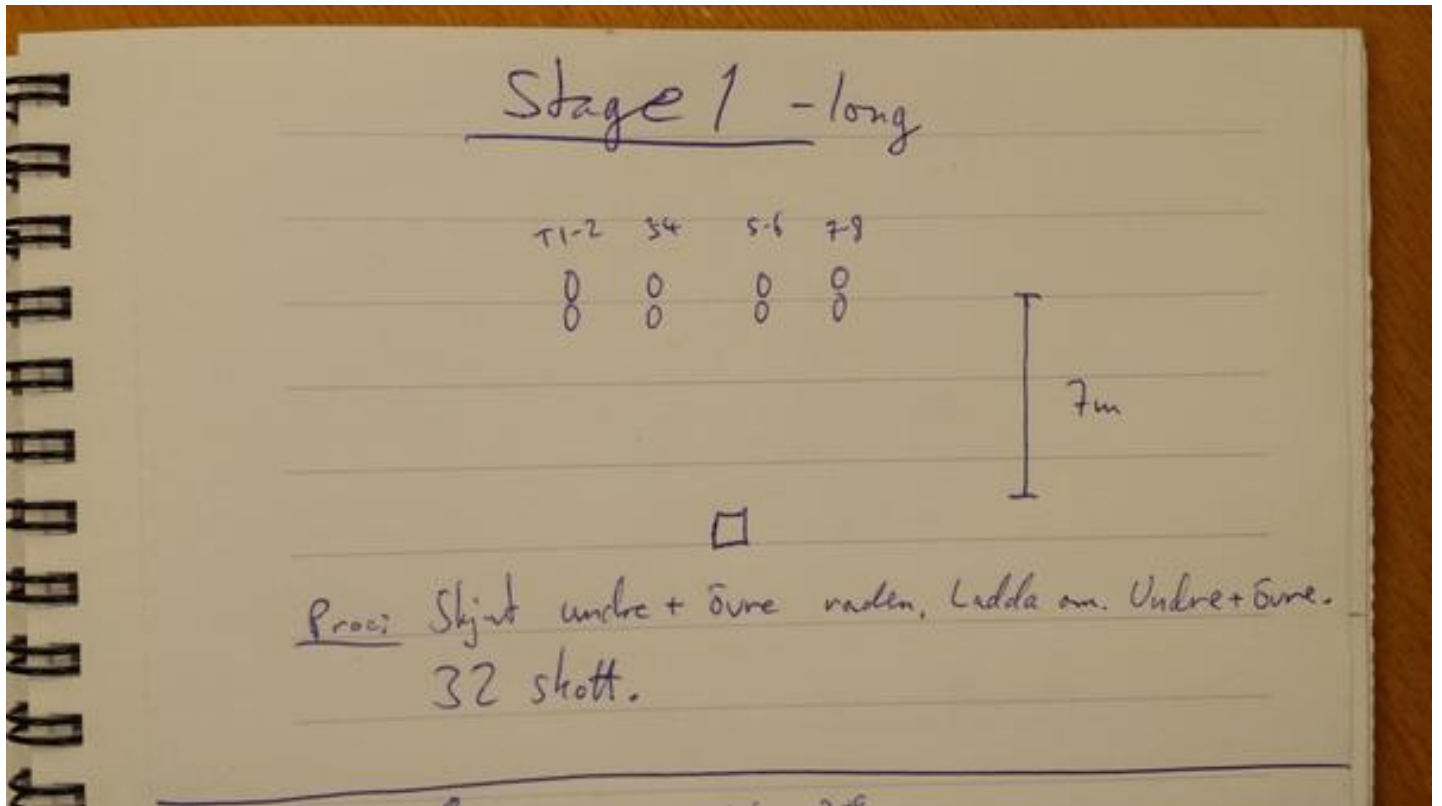 Stage 1 - long
T1-2 34 5-6 7-8
7m
Proc: Skjut undre + övre raden, Ladda om. Undre + övre.
32 skott.